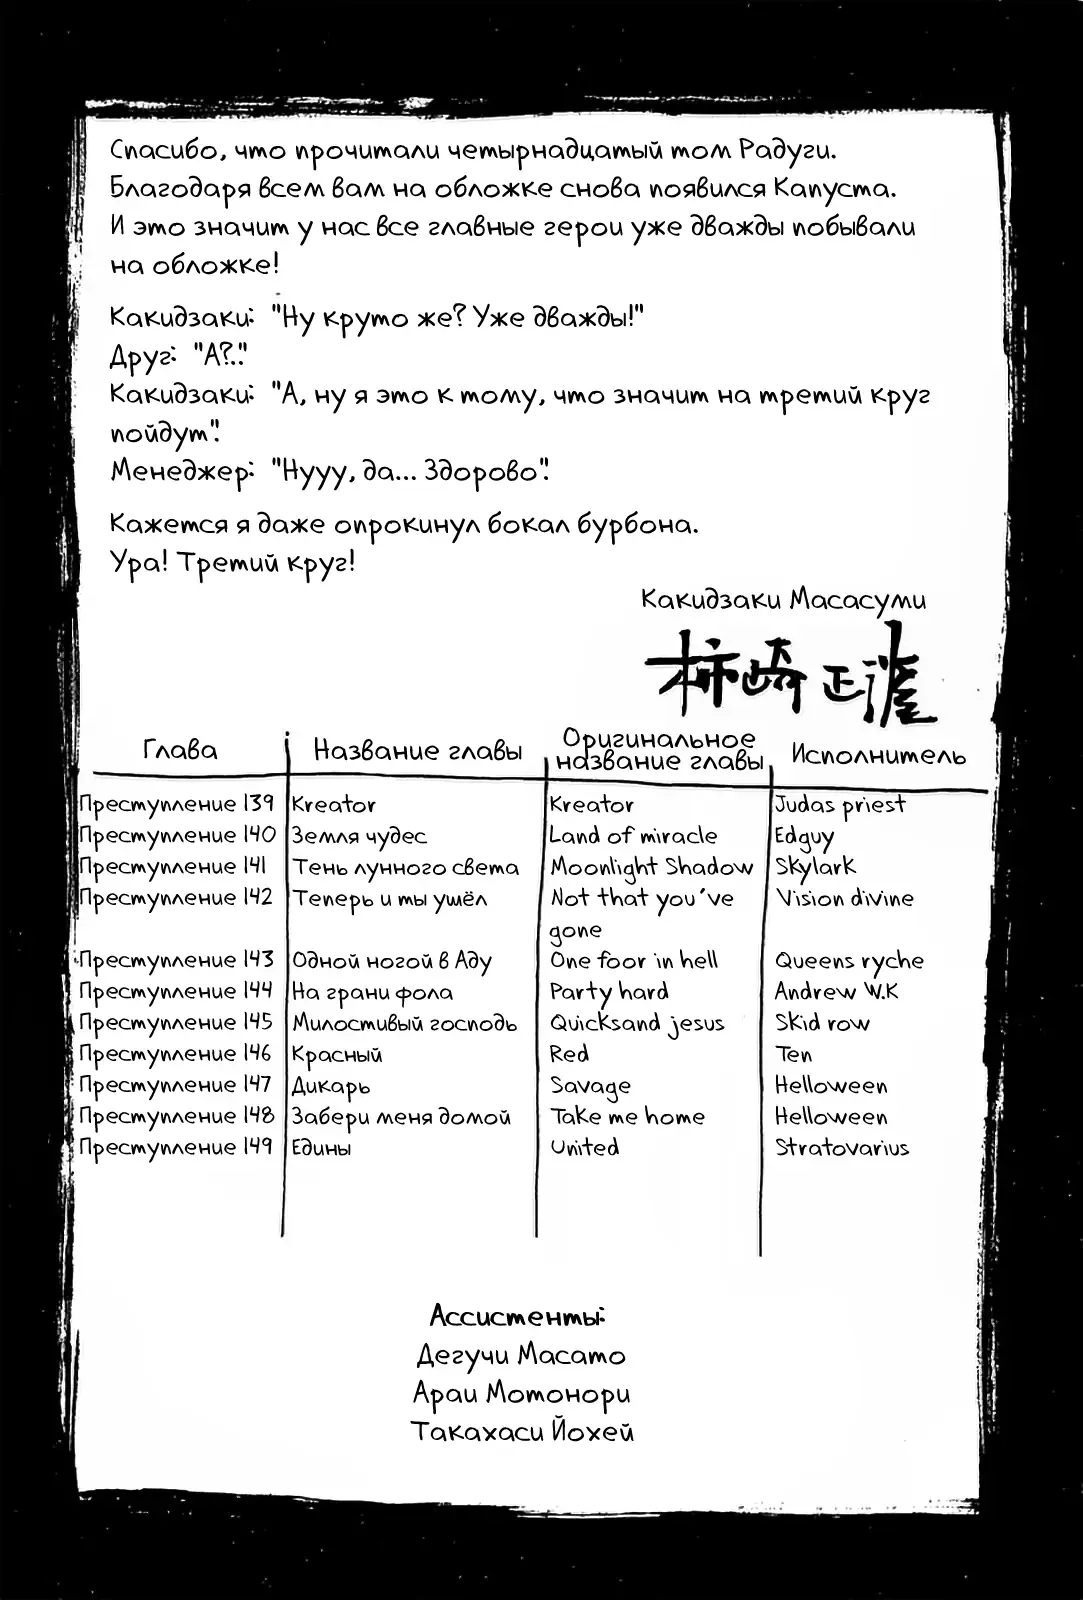 Спасибо, что прочитали четырнадцатый том Радуги.
Благодаря всем вам на обложке снова появился Капуста.
И это значит у нас все главные герои уже дважды побывали
на обложке!
Какидзаки: "Ну круто же? Уже дважды!"
Друг: "А?.."
Какидзаки: "А, ну я это к тому, что значит на третий круг
пойдут".
Менеджер: "Нууу, да... Здорово".
Кажется я даже опрокинул бокал бурбона.
Ура! Третий круг!
Какидзаки Масасуми
柿崎正澄
Глава Название главы Оригинальное название главы Исполнитель
Преступление 139 Kreator Kreator Judas priest
Преступление 140 Земля чудес Land of miracle Edguy
Преступление 141 Тень лунного света Moonlight Shadow Skylark
Преступление 142 Теперь и ты ушёл Not that you've gone Vision divine
Преступление 143 Одной ногой в Аду One foor in hell Queens ryche
Преступление 144 На грани фола Party hard Andrew W.K
Преступление 145 Милостивый господь Quicksand jesus Skid row
Преступление 146 Красный Red Ten
Преступление 147 Дикарь Savage Helloween
Преступление 148 Забери меня домой Take me home Helloween
Преступление 149 Едины United Stratovarius
Ассистенты:
Дегучи Масато
Араи Мотонори
Такахаси Йохей